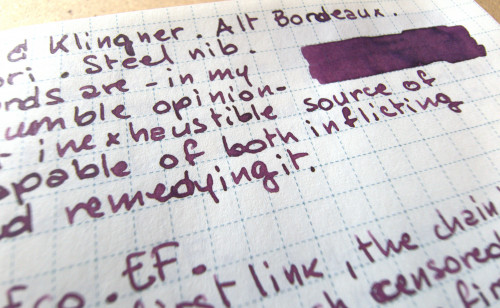 & Klingner. Alt Bordeaux.
ori. Steel nib.
nds are - in my
umble opinion-
inexhaustible source of
apable of both inflicting
d remedying it.
EF.
irst link, the chain
censored